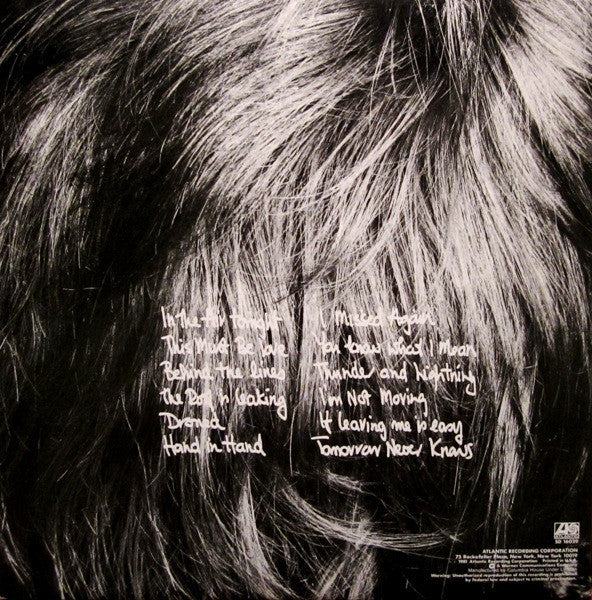 In The Air Tonight
This Must Be Love
Behind the Lines
The Roof is Leaking
Droned
Hand in Hand
I Missed Again
You Know What I Mean
Thunder and Lightning
I'm Not Moving
If leaving me is easy
Tomorrow Never Knows
SD 16029
ATLANTIC RECORDING CORPORATION
75 Rockefeller Plaza, New York, New York 10019
1981 Atlantic Recording Corporation Printed in U.S.A.
A Warner Communications Company
Manufactured by Columbia House Under License
Warning: Unauthorized reproduction of this recording is prohibited
by Federal law and subject to criminal prosecution.